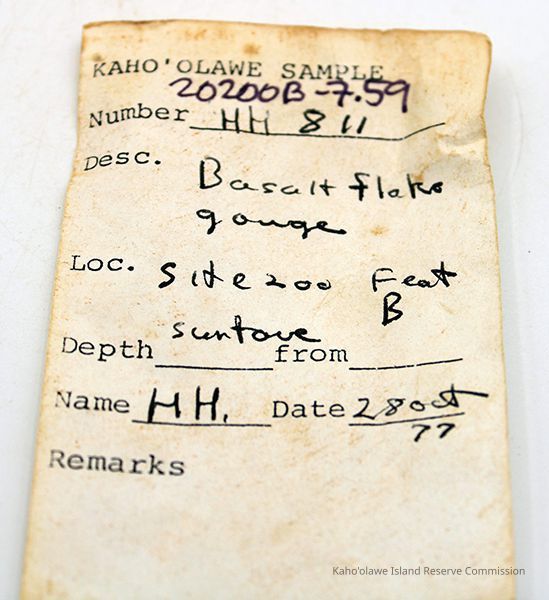 KAHO'OLAWE SAMPLE
20200B-7.59
Number HH 811
Desc. Basalt flake
gouge
Loc. Site 200 Feat
B
surface
Depth from
Name HH. Date 28 oct
77
Remarks
Kaho'olawe Island Reserve Commission